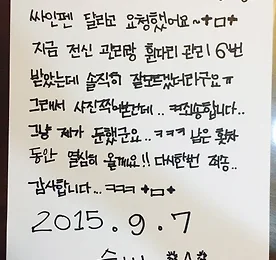 싸인펜 달라고 요청했어요~+ㅁ+
지금 전신 관리랑 휜다리 관리 6번
받았는데 솔직히 잘모르겠더라구요ㅠ
그래서 사진찍어봤건데.. ㅋ죄송합니다..
그냥 제가 둔했군요..ㅋㅋㅋ 남은 횟차
동안 열심히 올께요!! 다시한번 죄송..
감사합니다...ㅋㅋㅋ +ㅁ+
2015. 9. 7